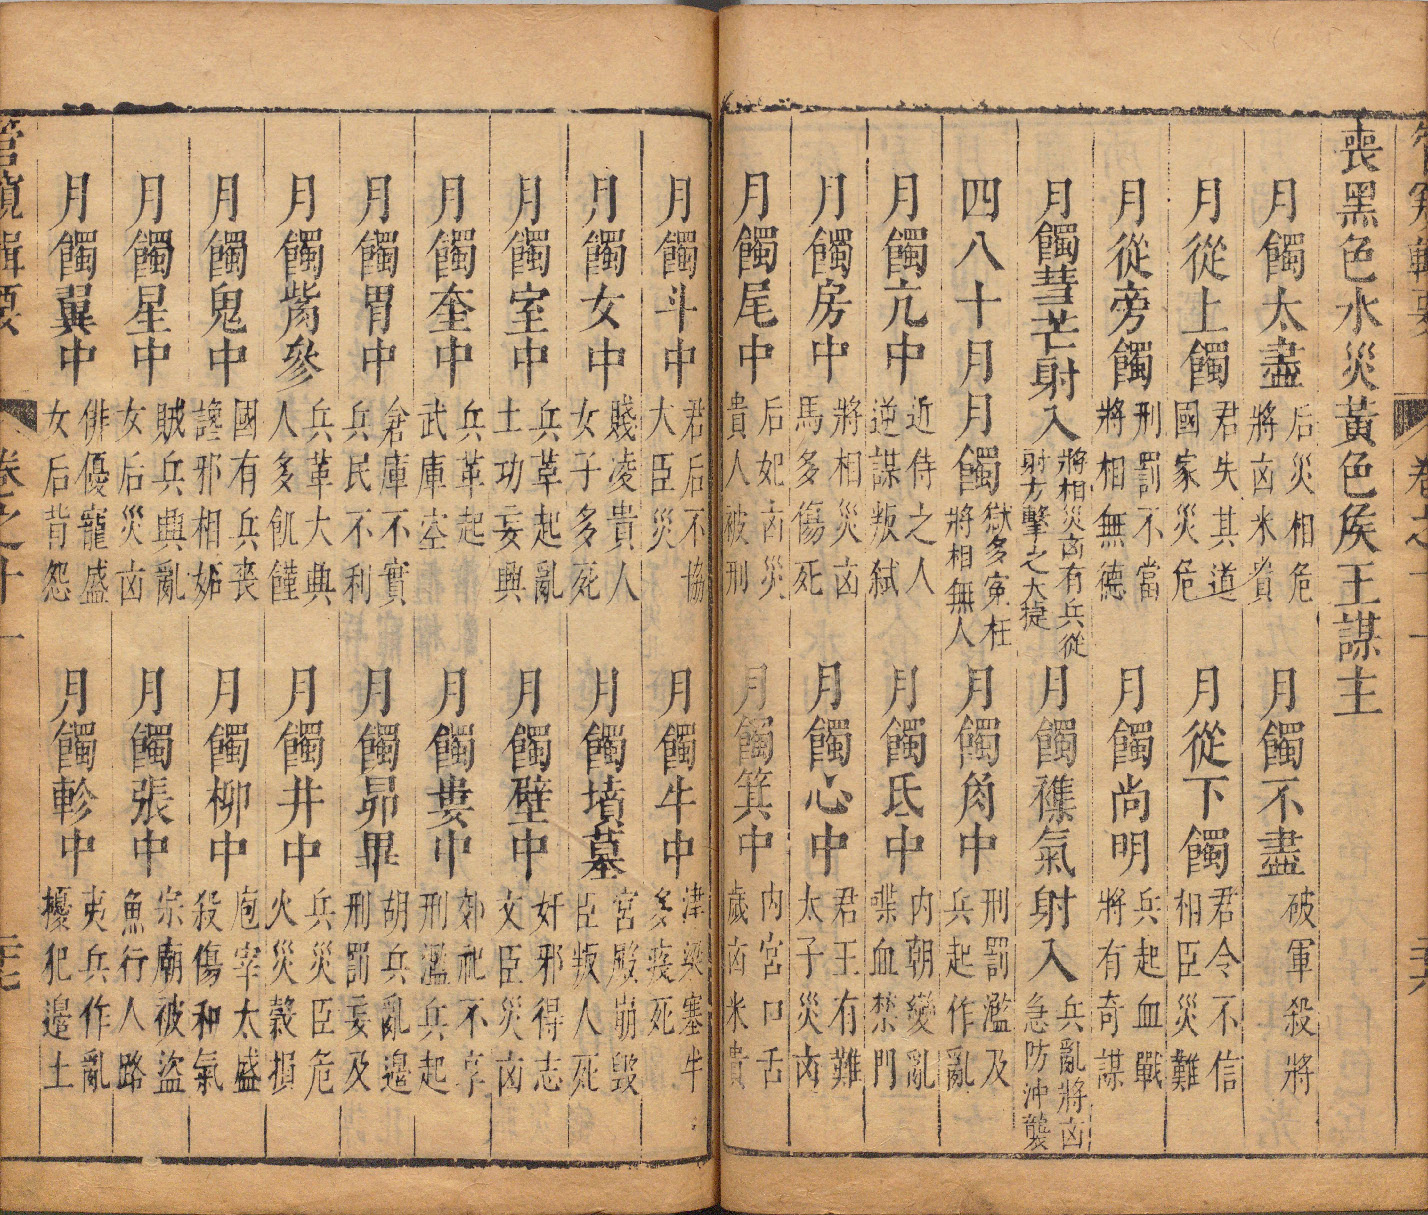 喪黑色水災黃色侯王謀主
月䭜太盡 后災相危 將凶米貴 月䭜不盡 破軍殺將
月從上䭜 君失其道 國家災危 月從下䭜 君令不信 相臣災難
月從旁䭜 刑罰不當 將相無德 月䭜尚明 兵起血戰 將有奇謀
月䭜彗芒射入 將相災凶有兵從 射方擊之大捷 月䭜㷶氣射入 兵亂將凶 急防沖襲
四八十月月䭜 獄多寃枉 將相無人 月䭜角中 刑罰濫及 兵起作亂
月䭜亢中 近侍之人 逆謀叛弑 月䭜氐中 內朝變亂 喋血禁門
月䭜房中 將相災凶 馬多傷死 月䭜心中 君王有難 太子災凶
月䭜尾中 后妃凶災 貴人被刑 月䭜箕中 內宮口舌 歲凶米貴
月䭜斗中 君后不協 大臣災 月䭜牛中 津梁塞牛 多疫死
月䭜女中 賤凌貴人 女子多死 月䭜墳墓 宮殿崩毀 臣叛人死
月䭜室中 兵革起亂 土功妄興 月䭜壁中 奸邪得志 文臣災凶
月䭜奎中 兵革起 武庫空 月䭜婁中 郊祀不享 刑濫兵起
月䭜胃中 倉庫不實 兵民不利 月䭜昴畢 胡兵亂邊 刑罰妄及
月䭜觜參 兵革大典 人多飢饉 月䭜井中 兵災臣危 火災榖損
月䭜鬼中 國有兵喪 讒邪相妬 月䭜柳中 庖宰太盛 殺傷和氣
月䭜星中 賊兵興亂 女后災凶 月䭜張中 宗廟被盜 魚行人路
月䭜翼中 俳優寵盛 女后背怨 月䭜軫中 夷兵作亂 擾犯邊土
管窺輯要 卷之十一 三十七